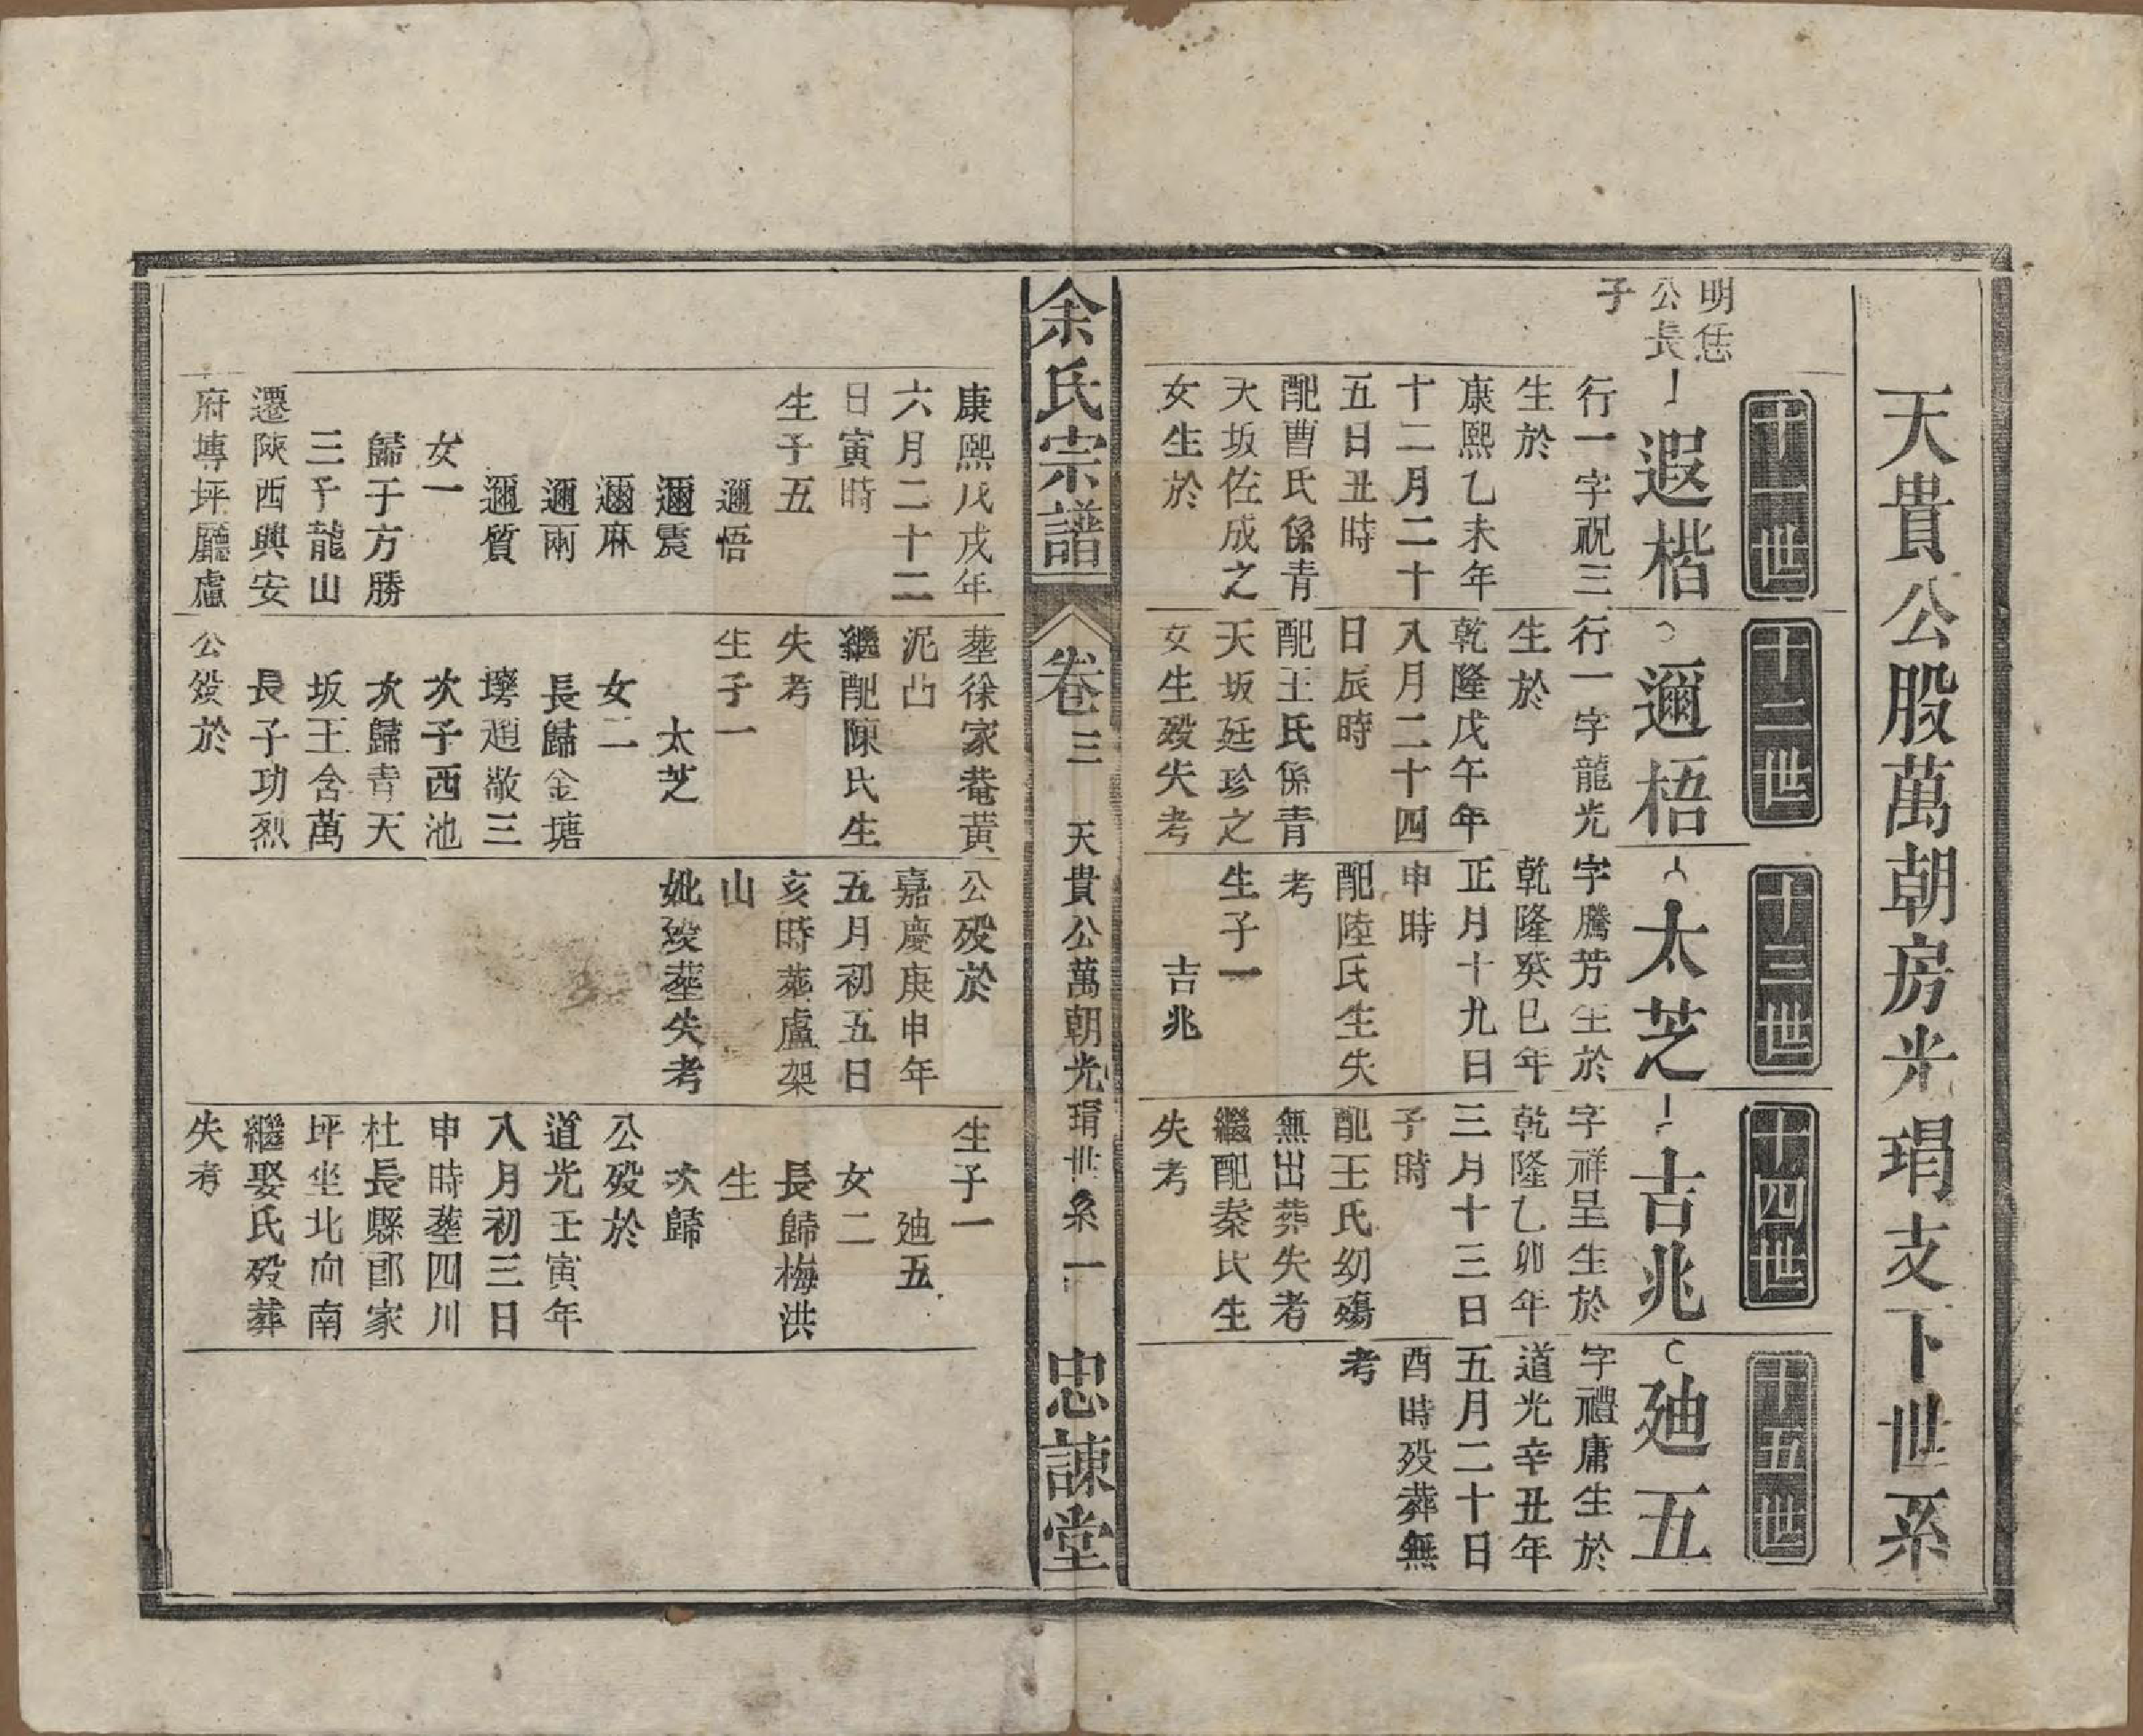 天貴公股萬朝房光瑁支下世系
十一世
十二世
十三世
十四世
十五世
明恁
公長
子
遐楷
行一字祝三
生於
康熙乙未年
十二月二十
五日丑時
配曹氏係青
天坂佐成之
女生於
邇梧
行一字龍光
生於
乾隆戊午年
八月二十四
日辰時
配王氏係青
天坂廷珍之
女生歿失考
太芝
字騰芳生於
乾隆癸巳年
正月十九日
申時
配陸氏生失
考
生子一
吉兆
吉兆
字祥呈生於
乾隆乙卯年
三月十三日
子時
配王氏幼殤
無出葬失考
繼配秦氏生
失考
廸五
字禮庸生於
道光辛丑年
五月二十日
酉時歿葬無
考
余氏宗譜
卷三
天貴公萬朝光瑁世系一
忠諫堂
康熙戊戌年
六月二十二
日寅時
生子五
邇悟
邇震
邇麻
邇兩
邇質
女一
歸于方勝
三子龍山
遷陝西興安
府塼坪廳盧
塟徐家菴黃
泥凸
繼配陳氏生
失考
生子一
太芝
女二
長歸金塘
塝趙敞三
次子西池
次歸青天
坂王含萬
長子功烈
公歿於
公歿於
嘉慶庚申年
五月初五日
亥時葬盧架
山
妣歿塟失考
生子一
廸五
女二
長歸梅洪
生
次歸
公歿於
道光壬寅年
八月初三日
申時塟四川
杜長縣郎家
坪坐北向南
繼娶氏歿葬
失考